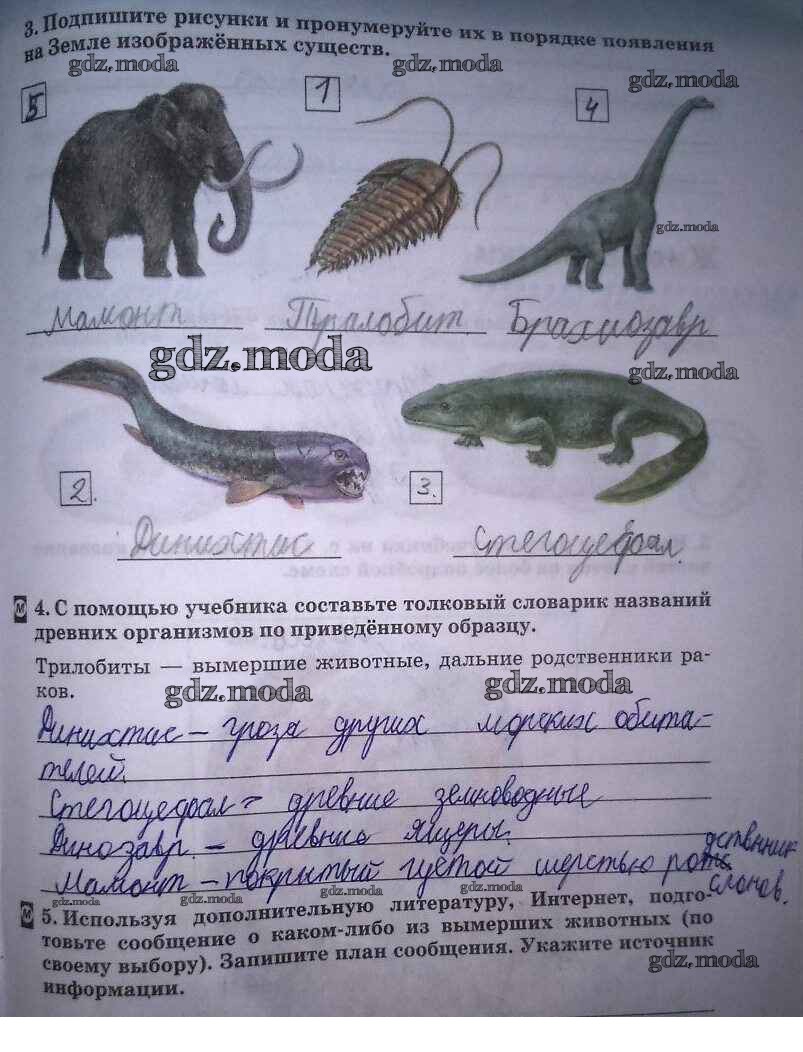 3. Подпишите рисунки и пронумеруйте их в порядке появления
на Земле изображённых существ.
gdz.moda gdz.moda gdz.moda
5 1 4
gdz.moda
Мамонт Трилобит Брахиозавр
gdz.moda gdz.moda
2. 3.
Динихтис Стегоцефал.
М 4. С помощью учебника составьте толковый словарик названий
древних организмов по приведённому образцу.
Трилобиты — вымершие животные, дальние родственники ра-
ков.
gdz.moda gdz.moda
Динихтис – гроза других морских обита-
телей.
Стегоцефал – древние земноводные
Динозавр – древние ящеры.
Мамонт – покрытый густой шерстью родственник
слонов.
gdz.moda gdz.moda gdz.moda
М 5. Используя дополнительную литературу, Интернет, подго-
товьте сообщение о каком-либо из вымерших животных (по
своему выбору). Запишите план сообщения. Укажите источник
информации.
gdz.moda